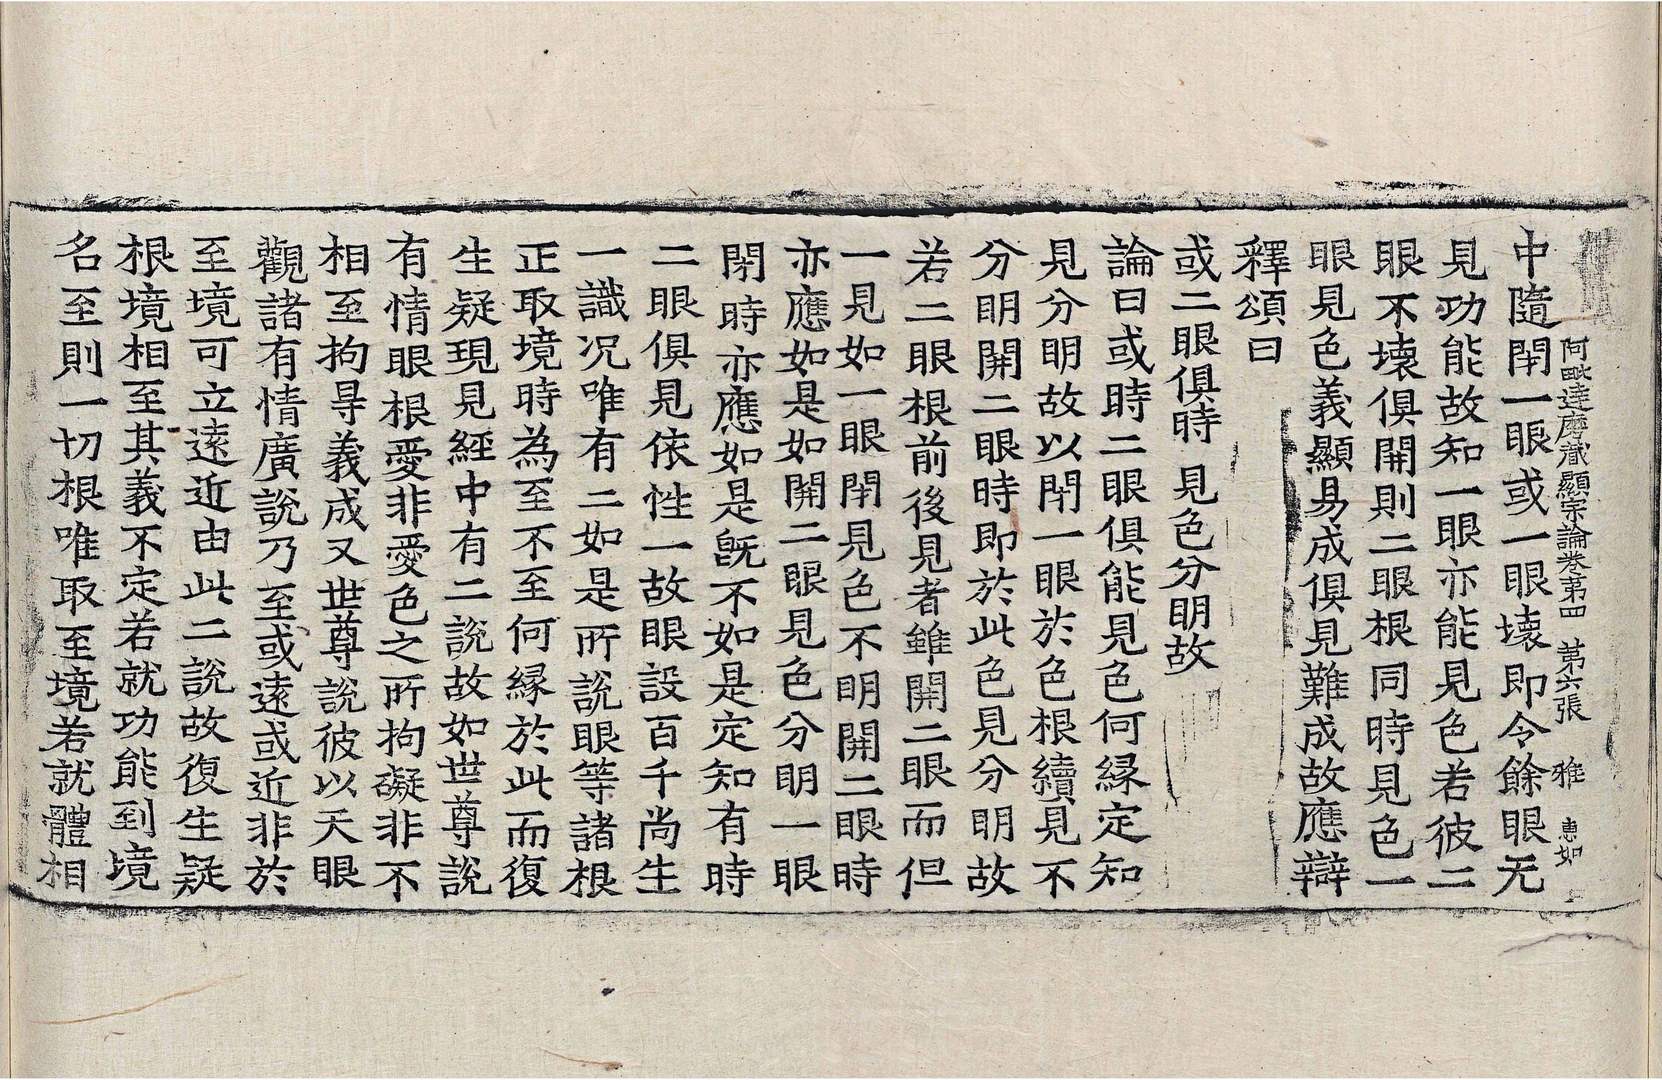 阿毗達磨藏顯宗論卷第四 第六張 雅 惠如
中隨閇一眼或一眼壞即令餘眼无
見功能故知一眼亦能見色若彼二
眼不壞俱開則二眼根同時見色一
眼見色義顯易成俱見難成故應辯
釋頌曰
或二眼俱時 見色分明故
論曰或時二眼俱能見色何緣定知
見分明故以閇一眼於色根續見不
分明開二眼時即於此色見分明故
若二眼根前後見者雖開二眼而但
一見如一眼閇見色不明開二眼時
亦應如是如開二眼見色分明一眼
閉時亦應如是旣不如是定知有時
二眼俱見依性一故眼設百千尚生
一識况唯有二如是所說眼等諸根
正取境時為至不至何緣於此而復
生疑現見經中有二說故如世尊說
有情眼根愛非愛色之所拘礙非不
相至拘㝵義成又世尊說彼以天眼
觀諸有情廣說乃至或遠或近非於
至境可立遠近由此二說故復生疑
根境相至其義不定若就功能到境
名至則一切根唯取至境若就體相